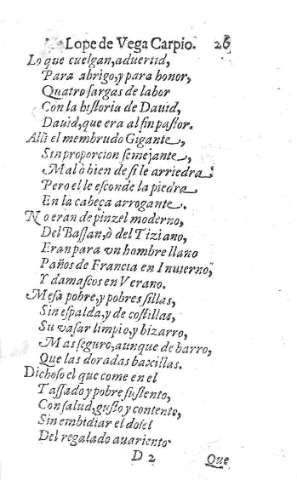 Lope de Vega Carpio. 26
Lo que cuelgan, aduertid,
Para abrigo, y para honor,
Quatro sargas de labor
Con la historia de Dauid,
Dauid, que era al fin pastor.
Alli el membrudo Gigante,
Sin proporcion semejante,
Mal ò bien de si le arriedra:
Pero el le esconde la piedra
En la cabeça arrogante.
No eran de pinzel moderno,
Del Bassan, ò del Tiziano,
Eran para vn hombre llano
Paños de Francia en Inuierno,
Y damascos en Verano.
Mesa pobre, y pobres sillas,
Sin espalda, y de costillas,
Su vasar limpio, y bizarro,
Mas seguro, aunque de barro,
Que las doradas baxillas.
Dichoso el que come en el
Tassado y pobre sustento,
Con salud, gusto y contento,
Sin embidiar el dosel
Del regalado auariento.
D 2 Que